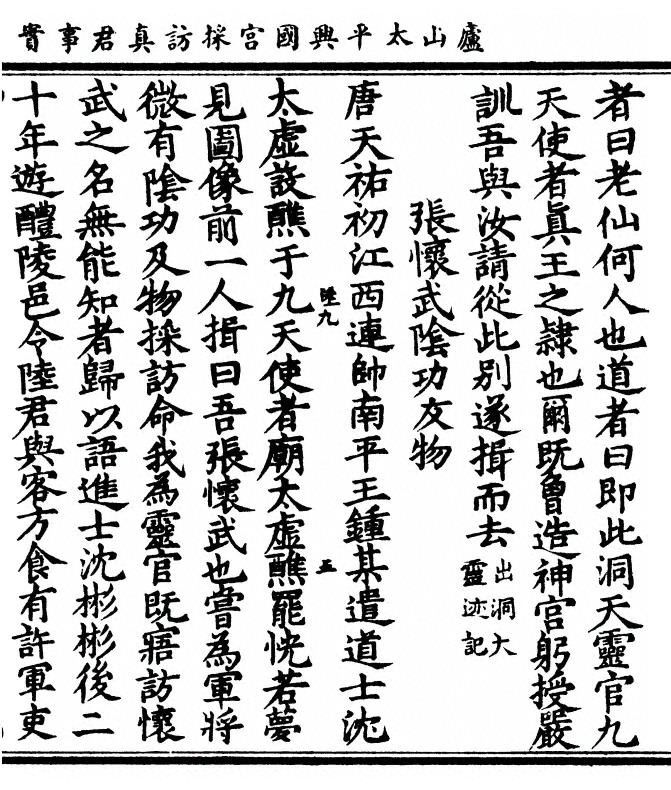 廬山太平興國宮採訪真君事實
者曰老仙何人也道者曰即此洞天靈官九
天使者真王之隷也爾既魯造神宮躬授嚴
訓吾與汝請從此別遂揖而去出洞大靈迹記
張懷武陰功及物
唐天祐初江西連帥南平王鍾某遣道士沈
陸九
五
太虛設醮于九天使者廟太虛醮罷恍若夢
見圖像前一人揖曰吾張懷武也嘗為軍將
微有陰功及物採訪命我為靈官既寤訪懷
武之名無能知者歸以語進士沈彬彬後二
十年遊醴陵邑令陸君與客方食有許軍吏